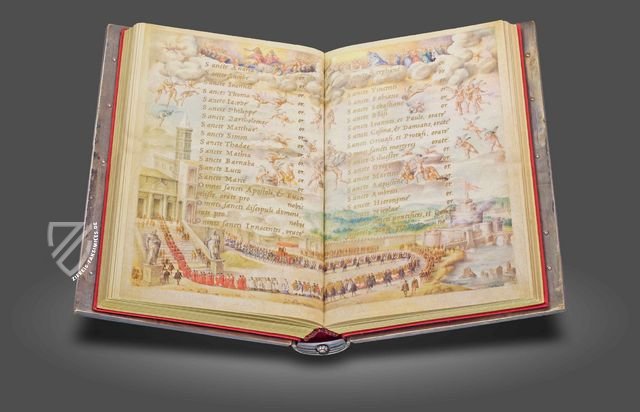 Sancte Andrea or.
Sancte
Sancte Ioannes or.
Sancte Thoma or.
Sancte Iacobe or.
Sancte Philippe or.
Sancte Bartholomee or.
Sancte Matthaee or.
Sancte Simon or.
Sancte Thadaee or.
Sancte Mathia or.
Sancte Barnaba or.
Sancte Luca or.
Sancte Marce or.
Omnes sancti Apostoli, & Euan
orate pro nobis
Omnes sancti discipuli domini,
orate pro nobis
Omnes sancti Innocentes, orate
Stephane or.
Sancte Vincenti or.
Sancte Fabiane or.
Sancte Sebastiane or.
Sancte Blasi or.
Sancti Ioannes, et Paule, orate
Sancti Cosma, et Damiane, orate
Sancti Geruasi, et Protasi, orate
Omnes sancti martyres orate
Sancte Siluester or.
Sancte Gregori or.
Sancte Martine or.
Sancte Augustine or.
Sancte Ambrosi or.
Sancte Hieronyme or.
Sancte Nicolae or.
pontifices, et
ZIEREIS-FAKSIMILES.DE